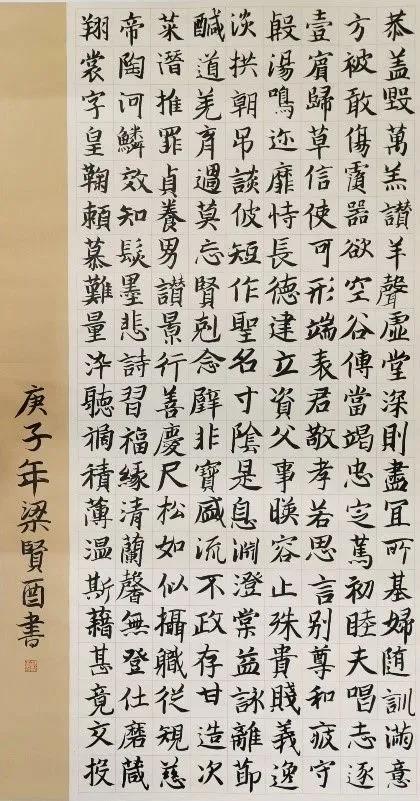 恭盖毀萬羔讃羊聲虛堂深則盡宜所基婦隨訓滿意
方被敢傷覆器欲空谷傳當竭忠定篤初睦夫唱志逐
壹賓歸草信使可形端表君敬孝若思言别尊和疲守
殷湯鳴迩靡恃長德建立資父事暎容止殊貴賤義逸
淡拱朝吊談彼短作聖名寸陰是息淵澄棠益詠離節
醎道羌育過莫忘賢剋念璧非寶盛流不政存甘造次
菜潛推罪貞養男讃景行善慶尺松如似攝職從規慈
帝陶河鱗效知髮墨悲詩習福緣清蘭馨無登仕磨箴
翔裳字皇鞠頼慕難量染聽禍積薄温斯藉甚竟交投
庚子年梁賢酉書